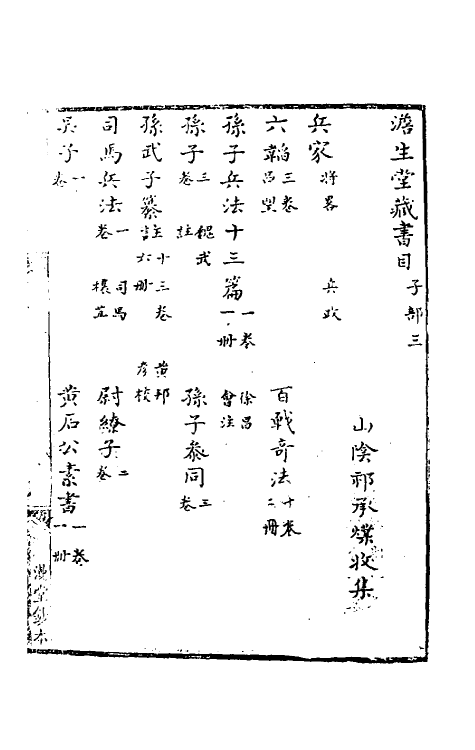 澹生堂藏書目 子部三
山陰祁承㸁收集
兵家 將畧 兵政
六韜 三卷 呂望 百戰奇法 十卷 二冊
孫子兵法十三篇 一卷 一冊 徐昌會注
孫子 三卷 魏武註 孫子參同 三卷
孫武子纂註 十三卷 六冊 黃邦彥校
司馬兵法 一卷 司馬穰苴 尉繚子 二卷
吳子 一卷 黃石公素書 一卷 一冊
漫堂鈔本